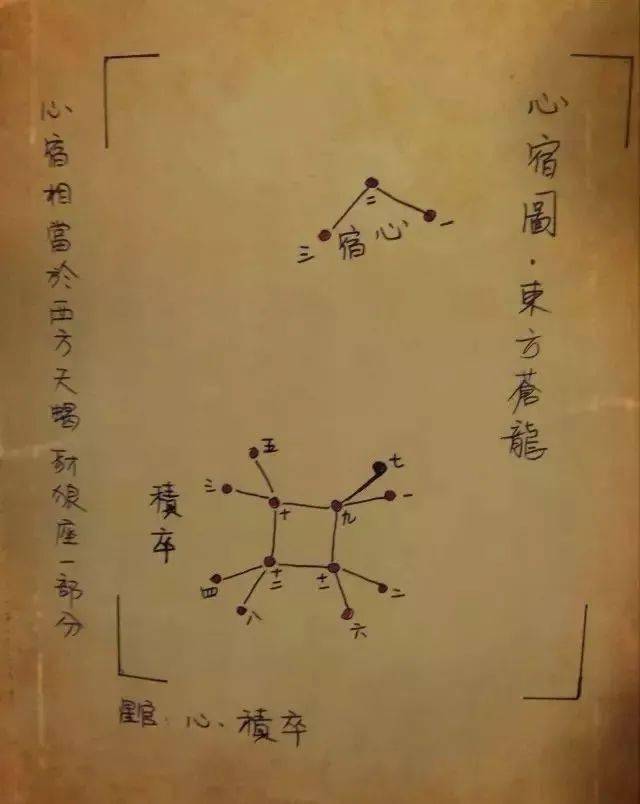 心宿圖·東方蒼龍
一
二
三
宿心
五
三
十
七
一
九
積卒
四
十二
八
十一
二
六
心宿相當於西方天蝎豺狼座一部分
星官：心、積卒